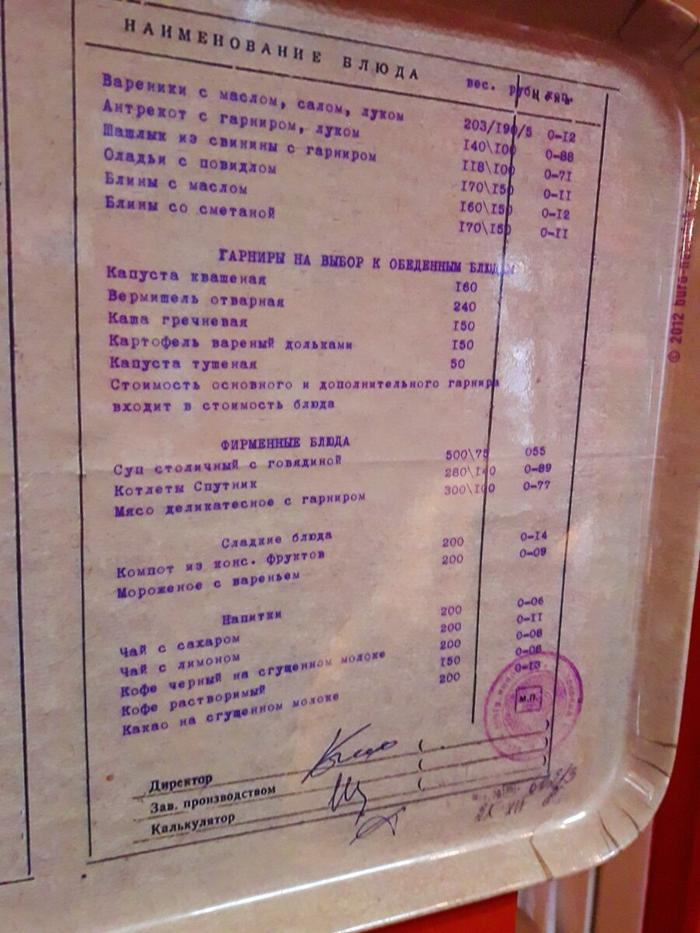 НАИМЕНОВАНИЕ БЛЮДА вес. руб. коп.
Вареники с маслом, салом, луком 203/190/5 0-12
Антрекот с гарниром, луком 140\100 0-88
Шашлык из свинины с гарниром 118\100 0-71
Оладьи с повидлом 170\150 0-11
Блины с маслом 160\150 0-12
Блины со сметаной 170\150 0-11
ГАРНИРЫ НА ВЫБОР К ОБЕДЕННЫМ БЛЮДАМ
Капуста квашеная 160
Вермишель отварная 240
Каша гречневая 150
Картофель вареный дольками 150
Капуста тушеная 50
Стоимость основного и дополнительного гарнира
входит в стоимость блюда
ФИРМЕННЫЕ БЛЮДА
Суп столичный с говядиной 500\75 055
Котлеты Спутник 280\140 0-89
Мясо деликатесное с гарниром 300\100 0-77
Сладкие блюда
Компот из конс. фруктов 200 0-14
Мороженое с вареньем 200 0-09
Напитки
Чай с сахаром 200 0-06
Чай с лимоном 200 0-11
Кофе черный на сгущенном молоке 200 0-08
Кофе растворимый 150 0-08
Какао на сгущенном молоке 200 0-13
М.П.
Директор (
Зав. производством (
Калькулятор (
© 2012